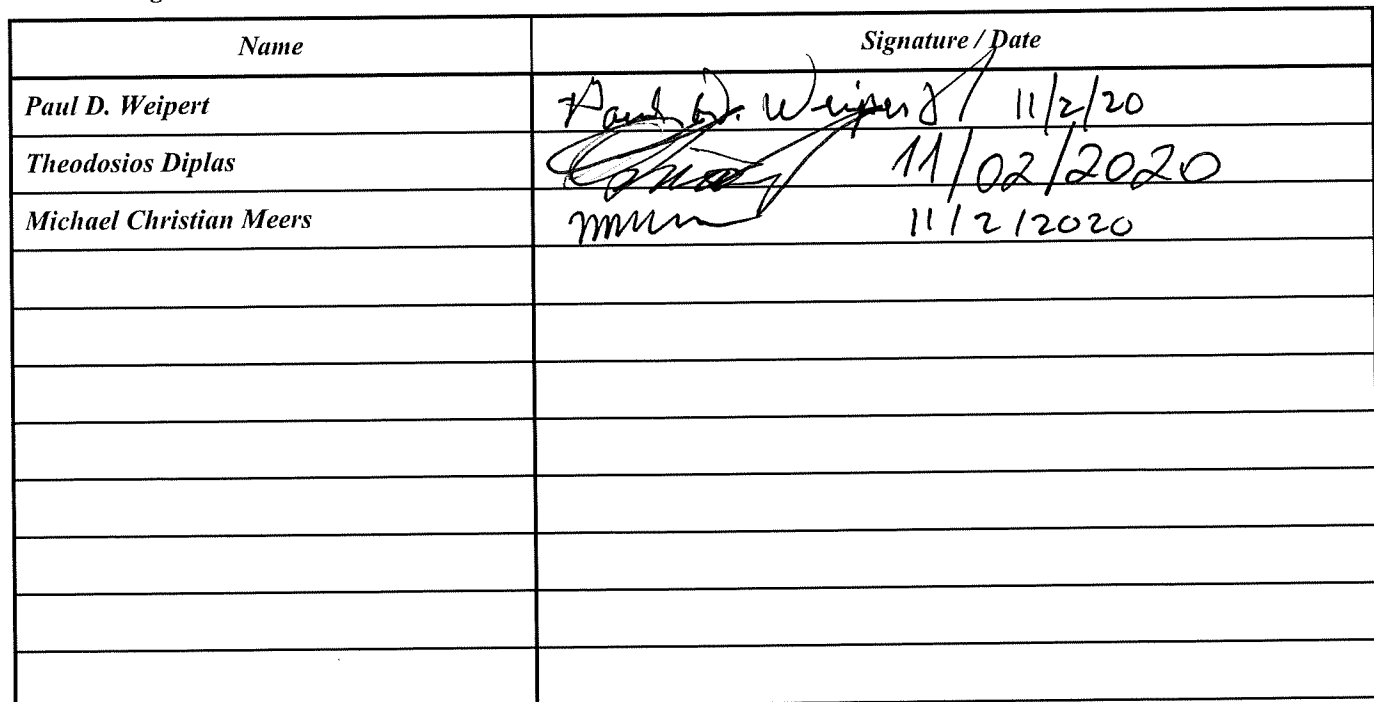 Name Signature / Date
Paul D. Weipert Paul D. Weipert / 11/2/20
Theodosios Diplas 11/02/2020
Michael Christian Meers 11/2/2020